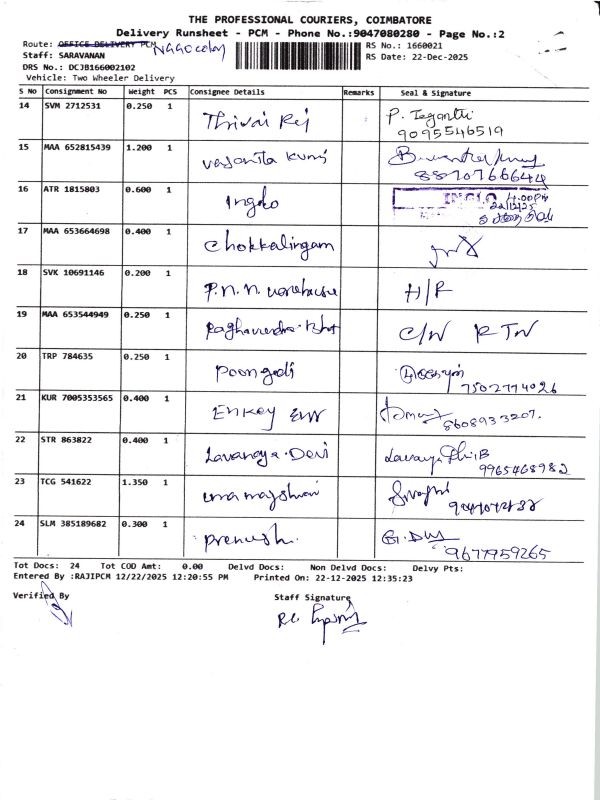 THE PROFESSIONAL COURIERS, COIMBATORE
Delivery Runsheet - PCM - Phone No.:9047080280 - Page No.:2
Route: OFFICE DELIVERY PCM
RS No.: 1660021
Staff: SARAVANAN
RS Date: 22-Dec-2025
DRS No.: DCJB166002102
Vehicle: Two Wheeler Delivery
S No Consignment No Weight PCS Consignee Details Remarks Seal & Signature
14 SVM 2712531 0.250 1 Thivai Rej
9095546519
15 MAA 652815439 1.200 1 vasanita kumj
16 ATR 1815803 0.600 1 Ingko
4:00PM
22/12/25
17 MAA 653664698 0.400 1 Chokkalingam
18 SVK 10691146 0.200 1 P.N.N. warehouse H/R
19 MAA 653544949 0.250 1 Raghavendra Bhat C/N RTN
20 TRP 784635 0.250 1 Poongodi
7502774026
21 KUR 7005353565 0.400 1 Enkey
8608933207.
22 STR 863822 0.400 1 Lavanya.Devi
9965468982
23 TCG 541622 1.350 1 umamagshwari
24 SLM 385189682 0.300 1
9677959265
Tot Docs: 24 Tot COD Amt: 0.00 Delvd Docs: Non Delvd Docs: Delvy Pts:
Entered By :RAJIPCM 12/22/2025 12:20:55 PM Printed On: 22-12-2025 12:35:23
Verified By Staff Signature